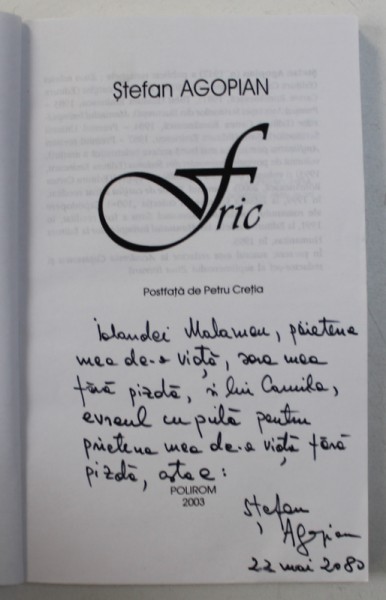 Ștefan AGOPIAN
Fric
Postfață de Petru Creția
Iolandei Malamen, prietena
mea de-o viață, sora mea
fără pizdă, și lui Camilo,
evreul cu pulă pentru
prietena mea de-o viață fără
pizdă, asta e:
POLIROM
2003
Ștefan
Agopian
22 mai 2080